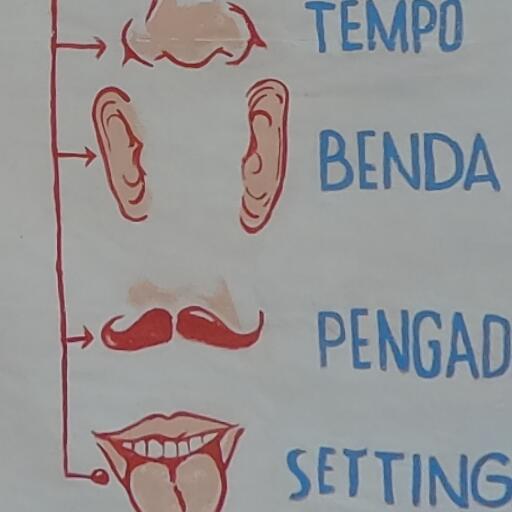 TEMPO
BENDA
PENGAD
SETTING